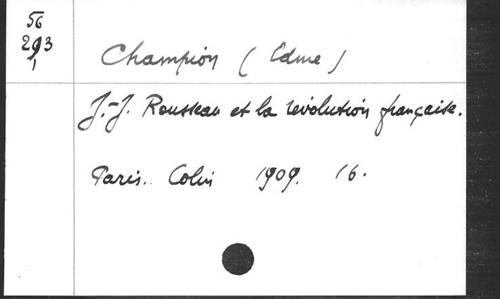 56
293
1
Champion (Edme)
J.-J. Rousseau et la révolution française.
Paris. Colin 1909. 16.